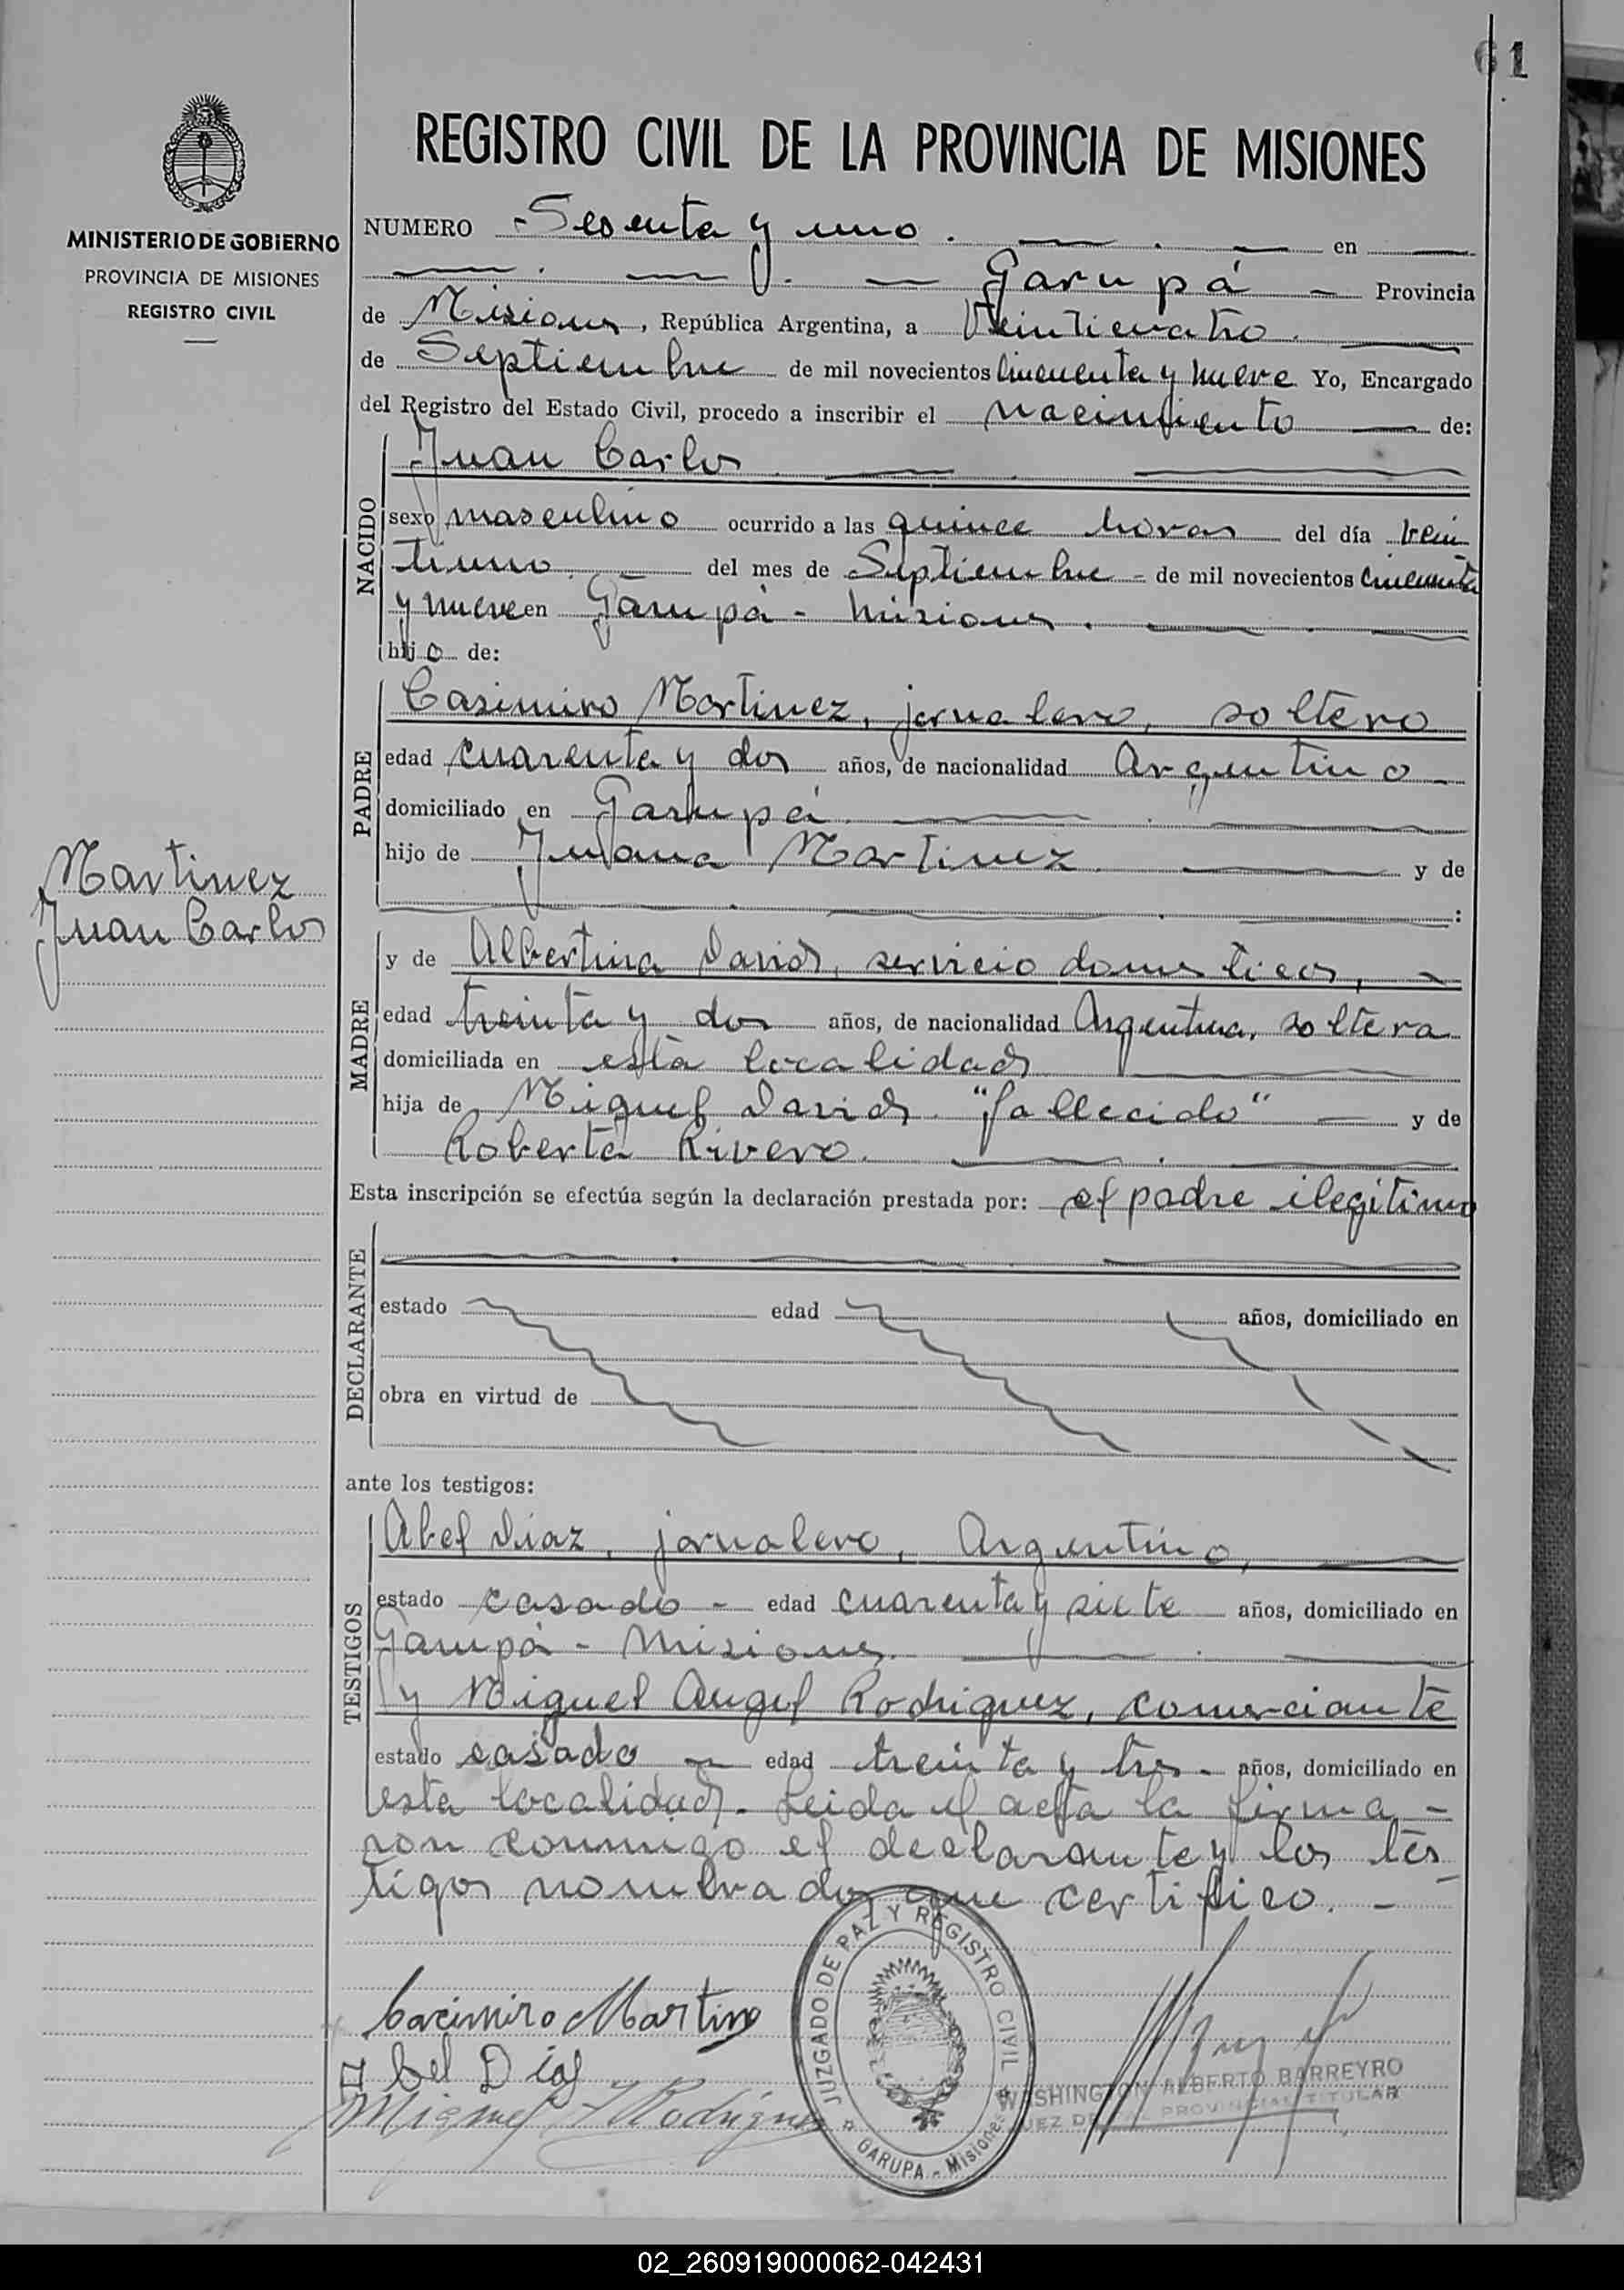 61
REGISTRO CIVIL DE LA PROVINCIA DE MISIONES
MINISTERIO DE GOBIERNO
PROVINCIA DE MISIONES
REGISTRO CIVIL
NUMERO Sesenta y uno. en
Garupá - Provincia
de Misiones, República Argentina, a Veinticuatro.
de Septiembre de mil novecientos Cincuenta y nueve Yo, Encargado
del Registro del Estado Civil, procedo a inscribir el nacimiento de:
NACIDO
Juan Carlos
sexo masculino ocurrido a las quince horas del día vein
tiuno. del mes de Septiembre - de mil novecientos Cincuenta
y nueve en Garupá - Misiones.
hijo de:
PADRE
Casimiro Martinez, jornalero, soltero
edad cuarenta y dos años, de nacionalidad Argentino -
domiciliado en Garupá.
hijo de Juana Martinez y de
Martinez
Juan Carlos
MADRE
y de Albertina David, servicio domesticos,
edad treinta y dos años, de nacionalidad Argentina, soltera
domiciliada en esta localidad
hija de Miguel David "fallecido" y de
Roberta Rivero.
Esta inscripción se efectúa según la declaración prestada por: el padre ilegitimo
DECLARANTE
estado edad años, domiciliado en
obra en virtud de
ante los testigos:
TESTIGOS
Abel Diaz, jornalero, Argentino,
estado casado - edad cuarenta y siete años, domiciliado en
Garupá - Misiones.
y Miguel Angel Rodriguez, comerciante
estado casado edad treinta y tres - años, domiciliado en
esta localidad. Leida el acta la firma -
ron conmigo el declarante y los tes
tigos nombrados que certifico. -
Casimiro Martinez
Abel Diaz
Miguel A Rodriguez
JUZGADO DE PAZ Y REGISTRO CIVIL
GARUPA - Misiones
WASHINGTON ALBERTO BARREYRO
JUEZ DE PAZ PROVINCIAL TITULAR
02_260919000062-042431